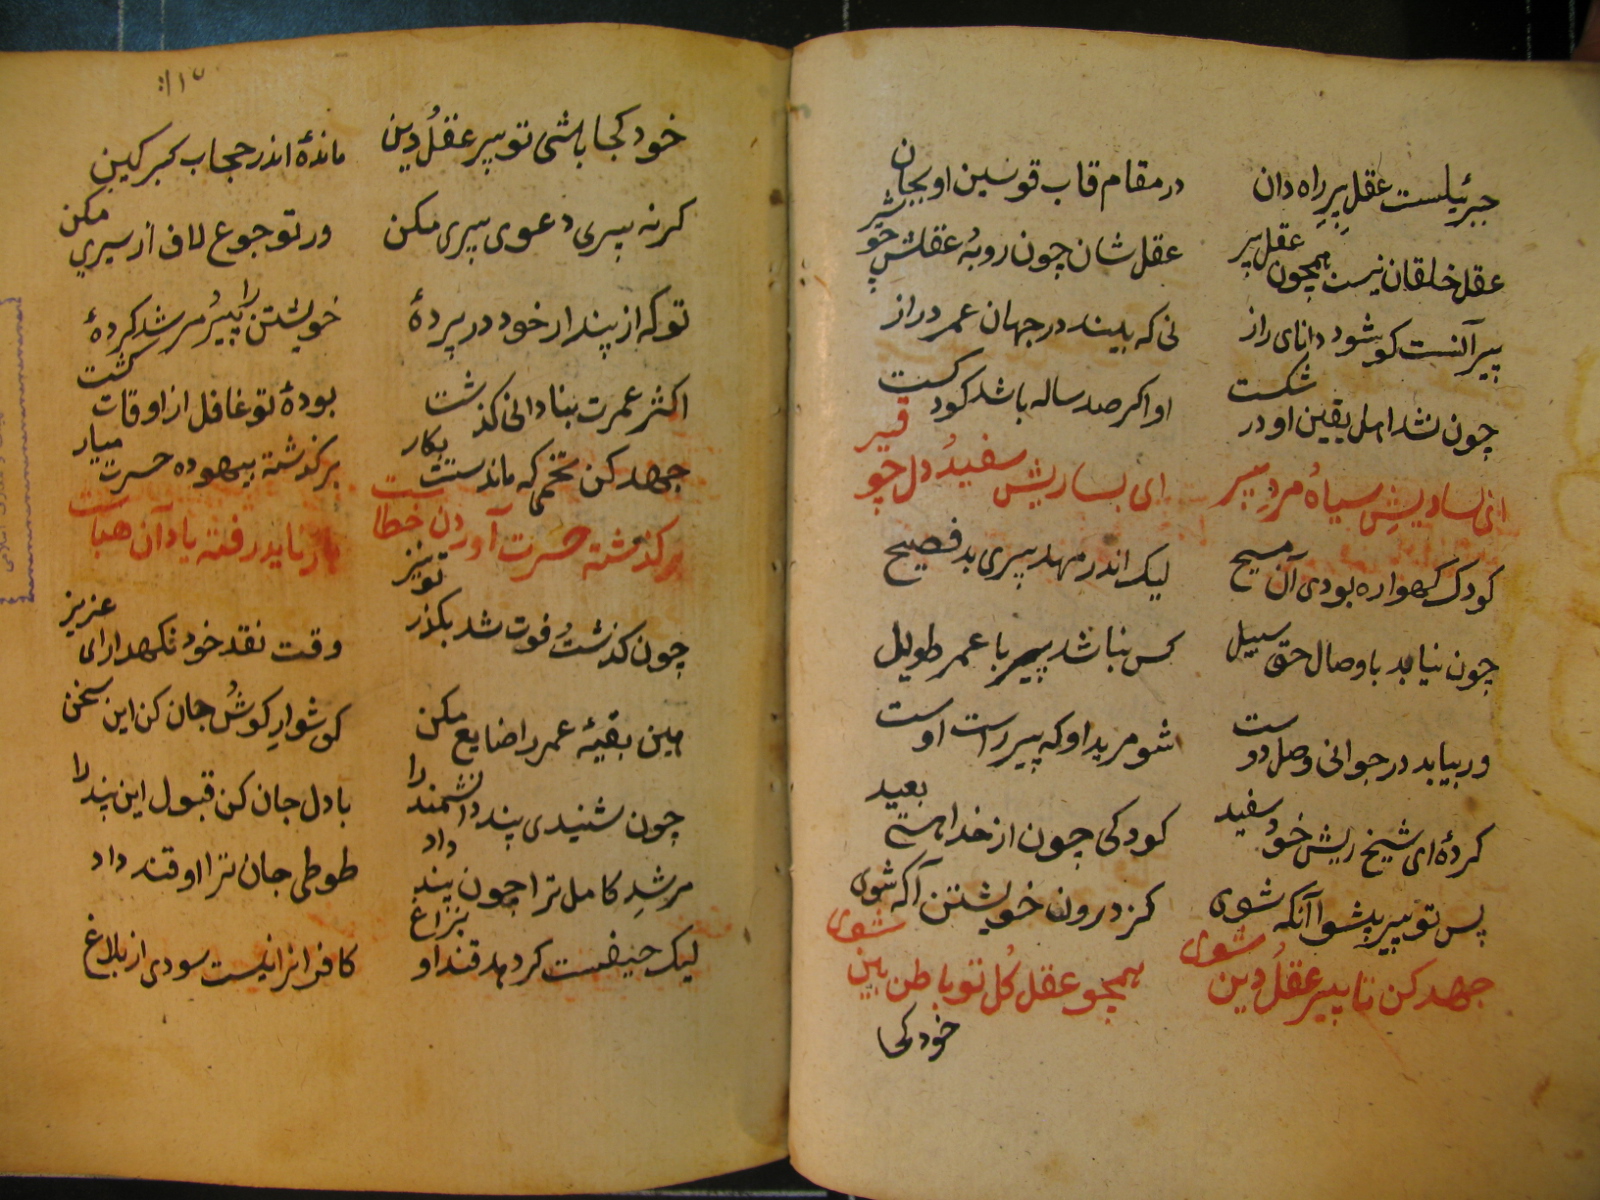 جبرئیلست عقل پیر راه دان در مقام قاب قوسین او بجان
عقل خلقان نیست همچون عقل پیر عقل شان چون روبه عقلش چو شیر
پیر آنست کو شود دانای راز نی که بیند در جهان عمر دراز
چون نشد اهل یقین او در شکست او اکر صد ساله باشد کودکست
ای بسا ریش سیاه مرد پیر ای بسا ریش سفید دل چو قیر
کودک کهواره بودی آن مسیح لیک اندر مهد پیری بد فصیح
چون نیابد با وصال حق سبیل کس نباشد پیر با عمر طویل
ور بیابد در جوانی وصل دوست شو مرید او که پیر راست اوست
کردهٔ ای شیخ ریش خود سفید کودکی چون از خدا هستی بعید
پس تو پیر پیشوا آنکه شوی کز درون خویشتن آکه شوی
جهد کن تا پیر عقل دین شوی همچو عقل کل تو باطن بین شوی
خود کجا
خود کجا باشی تو پیر عقل دین ماندهٔ اندر حجاب کبر کین
کر نه پیری دعوی پیری مکن ور تو جوع لاف از سیری مکن
تو که از پندار خود در پردهٔ خویشتن را پیر مرشد کردهٔ
اکثر عمرت بنادانی کذشت بودهٔ تو غافل از اوقات کشت
جهد کن تخمی که ماندستت بکار بر کذشته بیهوده حسرت میار
بر کذشته حسرت آوردن خطاست باز ناید رفته یاد آن هباست
چون کذشت فوت شد بکذر تو نیز وقت نقد خود نکهدار ای عزیز
هین بقیهٔ عمر را ضایع مکن کوشوار کوش جان کن این سخن
چون شنیدی پند دانشمند را با دل جان کن قبول این پند را
مرشد کامل ترا چون پند داد طوطی جان ترا او قند داد
لیک حیفست کر دهد قند او بزاغ کافرانرا نیست سودی از بلاغ